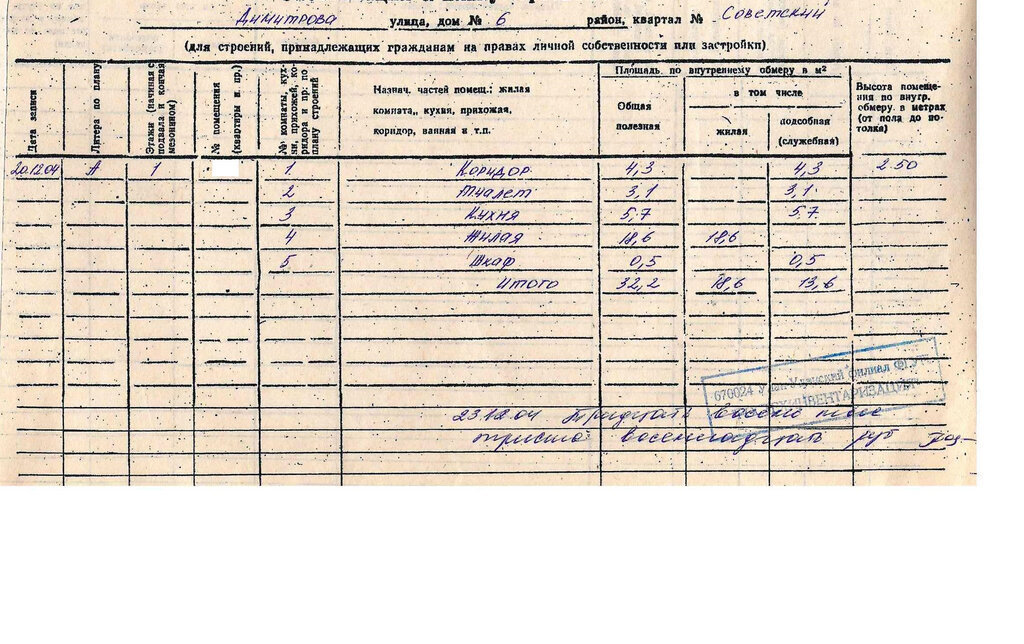 Димитрова улица, дом № 6 район, квартал № Советский
(для строений, принадлежащих гражданам на правах личной собственности или застройки)
Дата записи
Литера по плану
Этажи (начиная с подвала и кончая мезонином)
№ помещения (квартиры и. пр.)
№ комнаты, кухни, прихожей, коридора и пр: по плану строений
Назнач. частей помещ.: жилая
комната,, кухня, прихожая,
коридор, ванная и т.п.
Площадь по внутреннему обмеру в м²
Общая
полезная
в том числе
жилая
подсобная
(служебная)
Высота помеще-
ния по внутр.
обмеру. в метрах
(от пола до по-
толка)
20.12.04 А 1 1 Коридор 4,3 4,3 2.50
2 туалет 3,1 3,1
3 Кухня 5,7 5.7
4 Жилая 18,6 18,6
5 Шкаф 0,5 0,5
Итого 32,2 18,6 13,6
670024 Улан-Удэнский филиал ФГУП
ТЕХИНВЕНТАРИЗАЦИЯ
23.12.04 Тридцать восемь тыс
триста восемнадцать руб